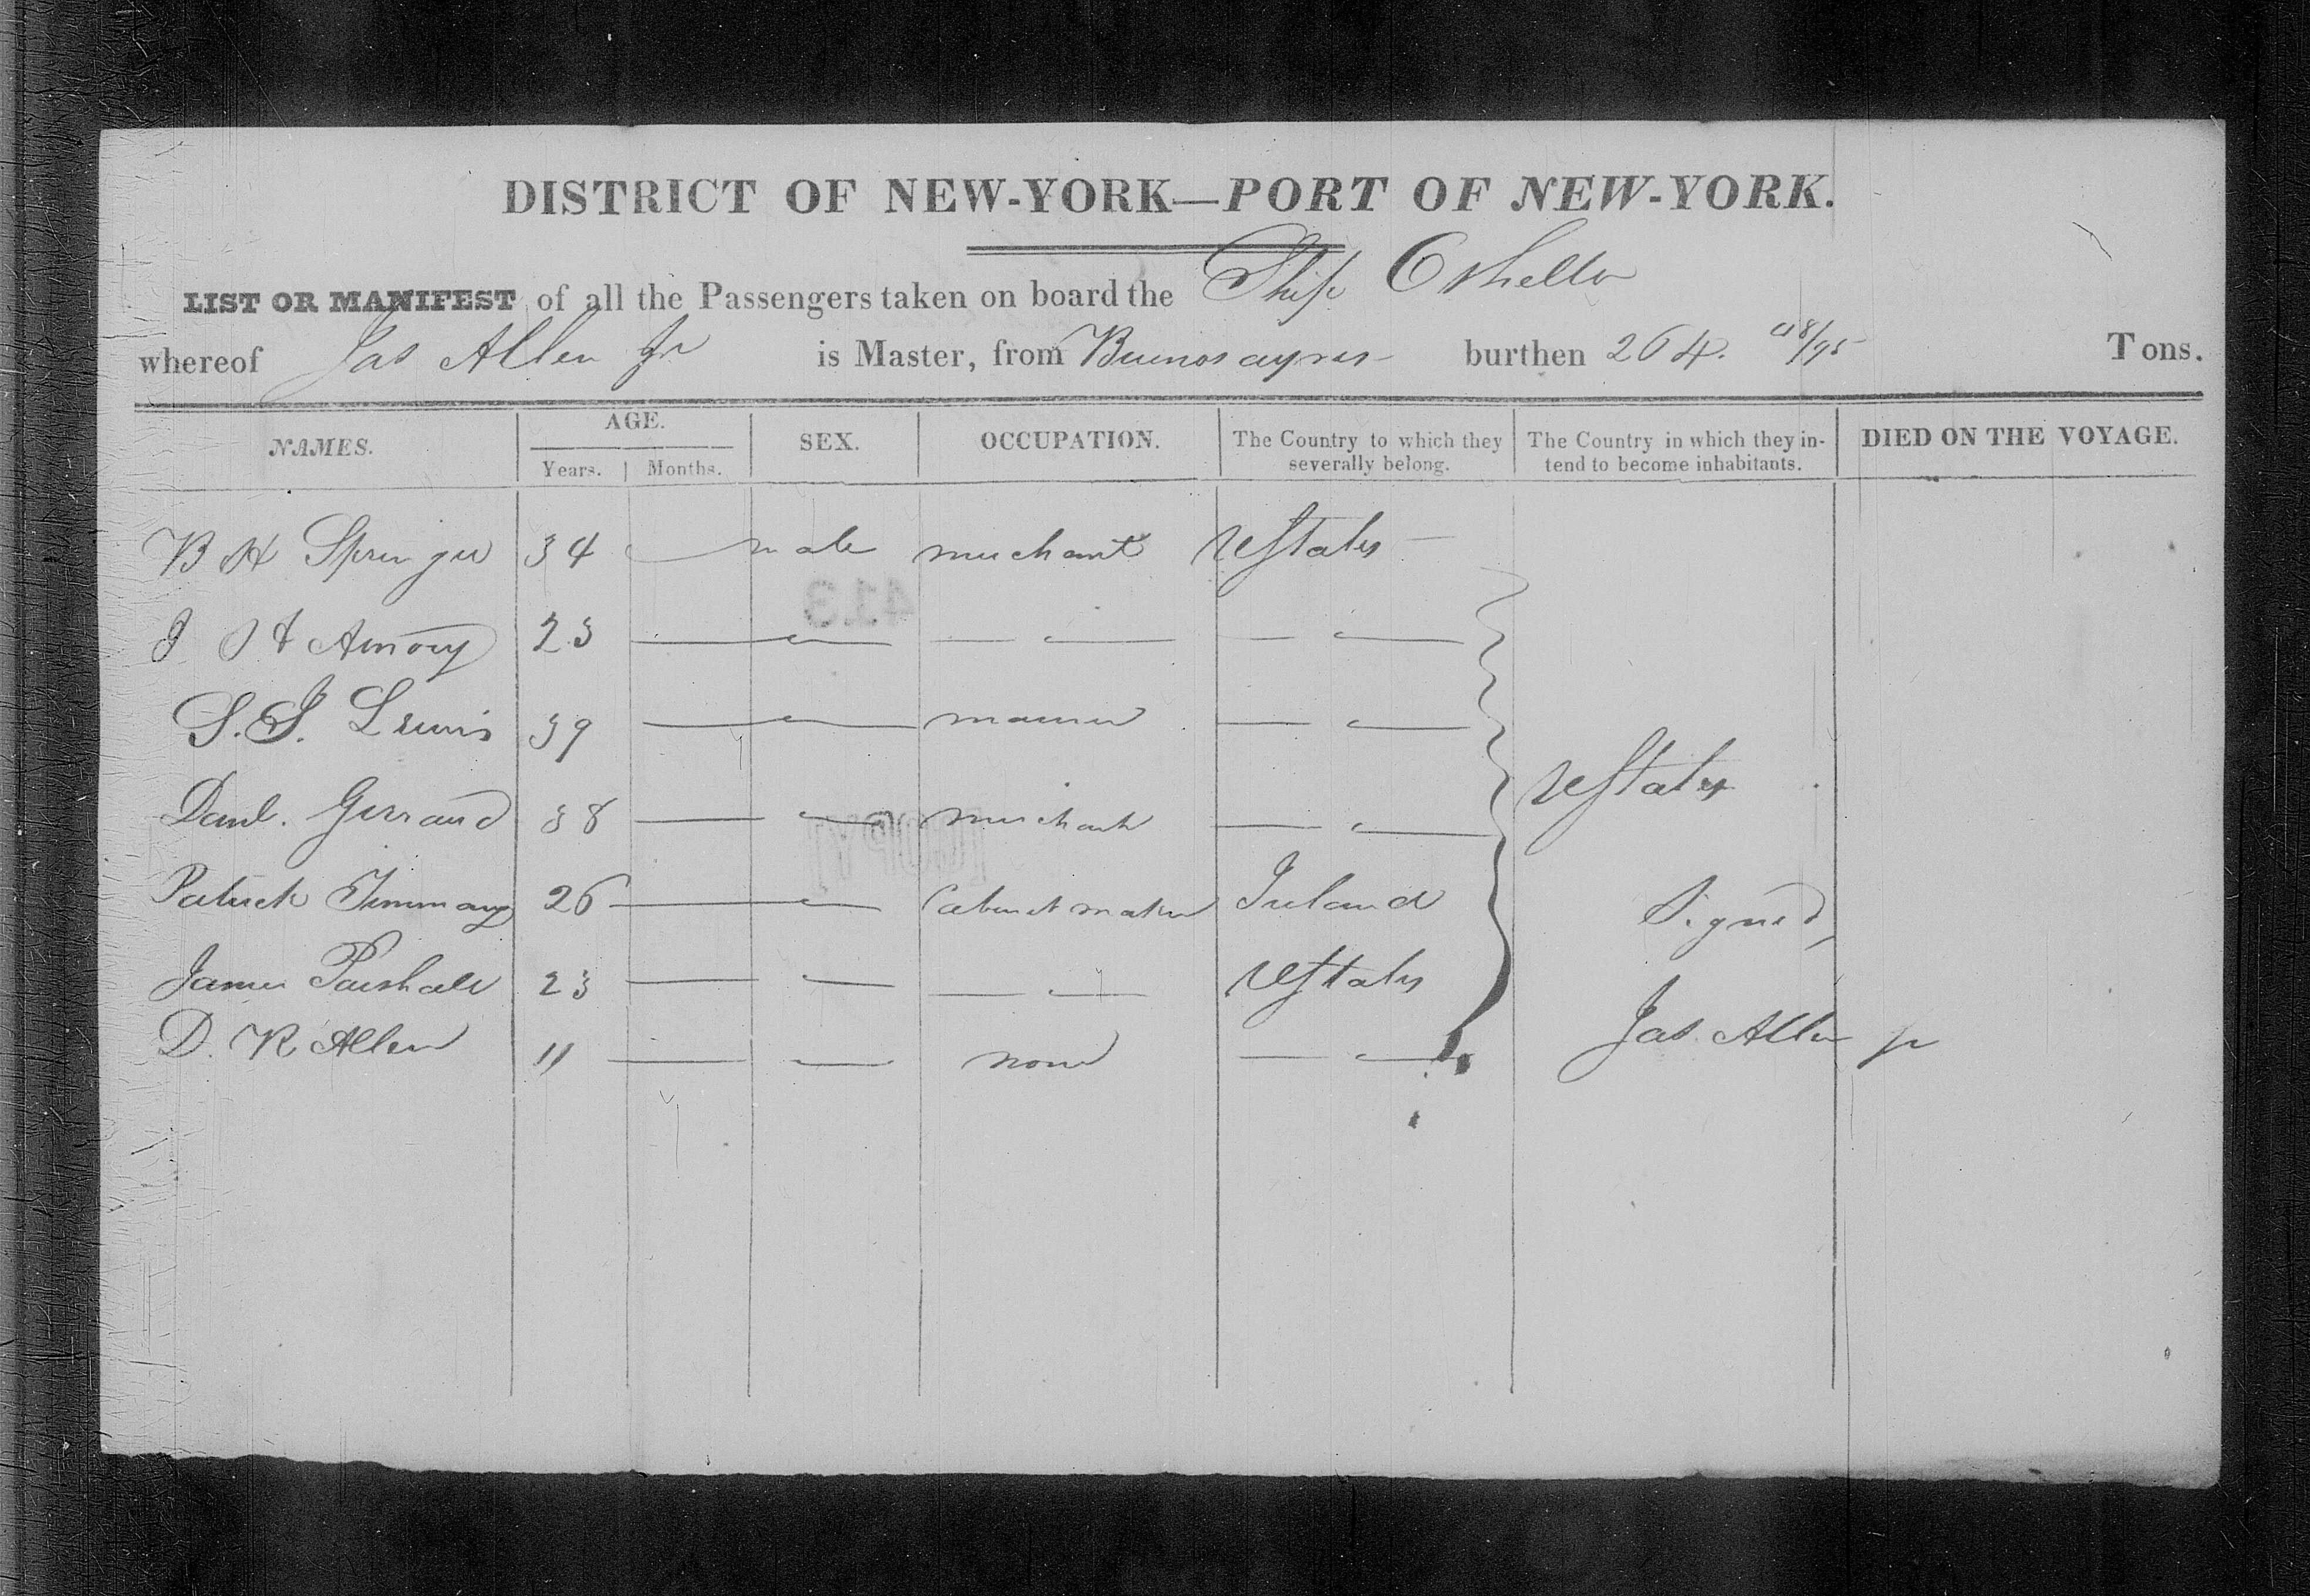 DISTRICT OF NEW-YORK—PORT OF NEW-YORK.
LIST OR MANIFEST of all the Passengers taken on board the Ship Othello
whereof Jas Allen Jr is Master, from Buenos ayres burthen 264. 48/95 Tons.
NAMES. AGE. SEX. OCCUPATION. The Country to which they severally belong. The Country in which they intend to become inhabitants. DIED ON THE VOYAGE.
Years. Months.
B H Springer 34 male merchant UStates
J H Amory 23
413
S. S. Lewis 39 mariner
UStates
Danl. Gerraud 38 merchant
[COPY]
Patrick Timmany 26 Cabinet maker Ireland Signed,
James Parshall 23 UStates
D. R Allen 11 none Jas Allen Jr